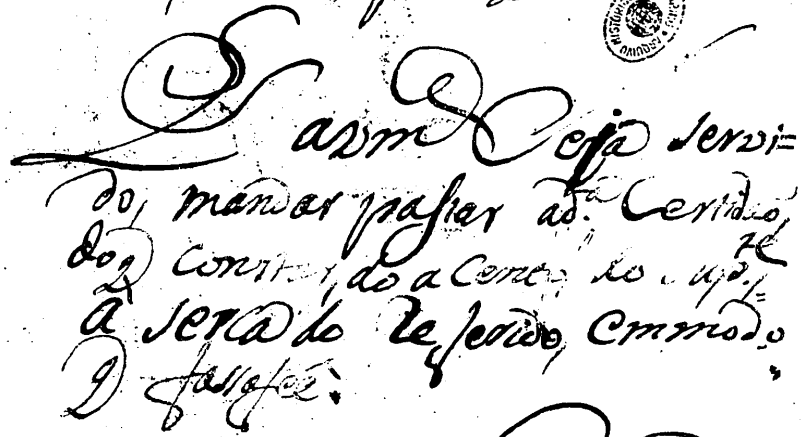 P. a vm Seja servi=
do, mandar passar ad.ª Certidão,
do q constar, do acento do Sup.te
a serca do Referido, em modo
q fassa fee.